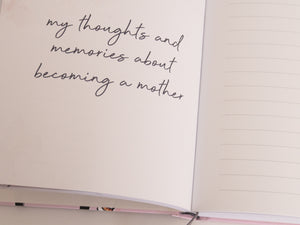 my thoughts and
memories about
becoming a mother